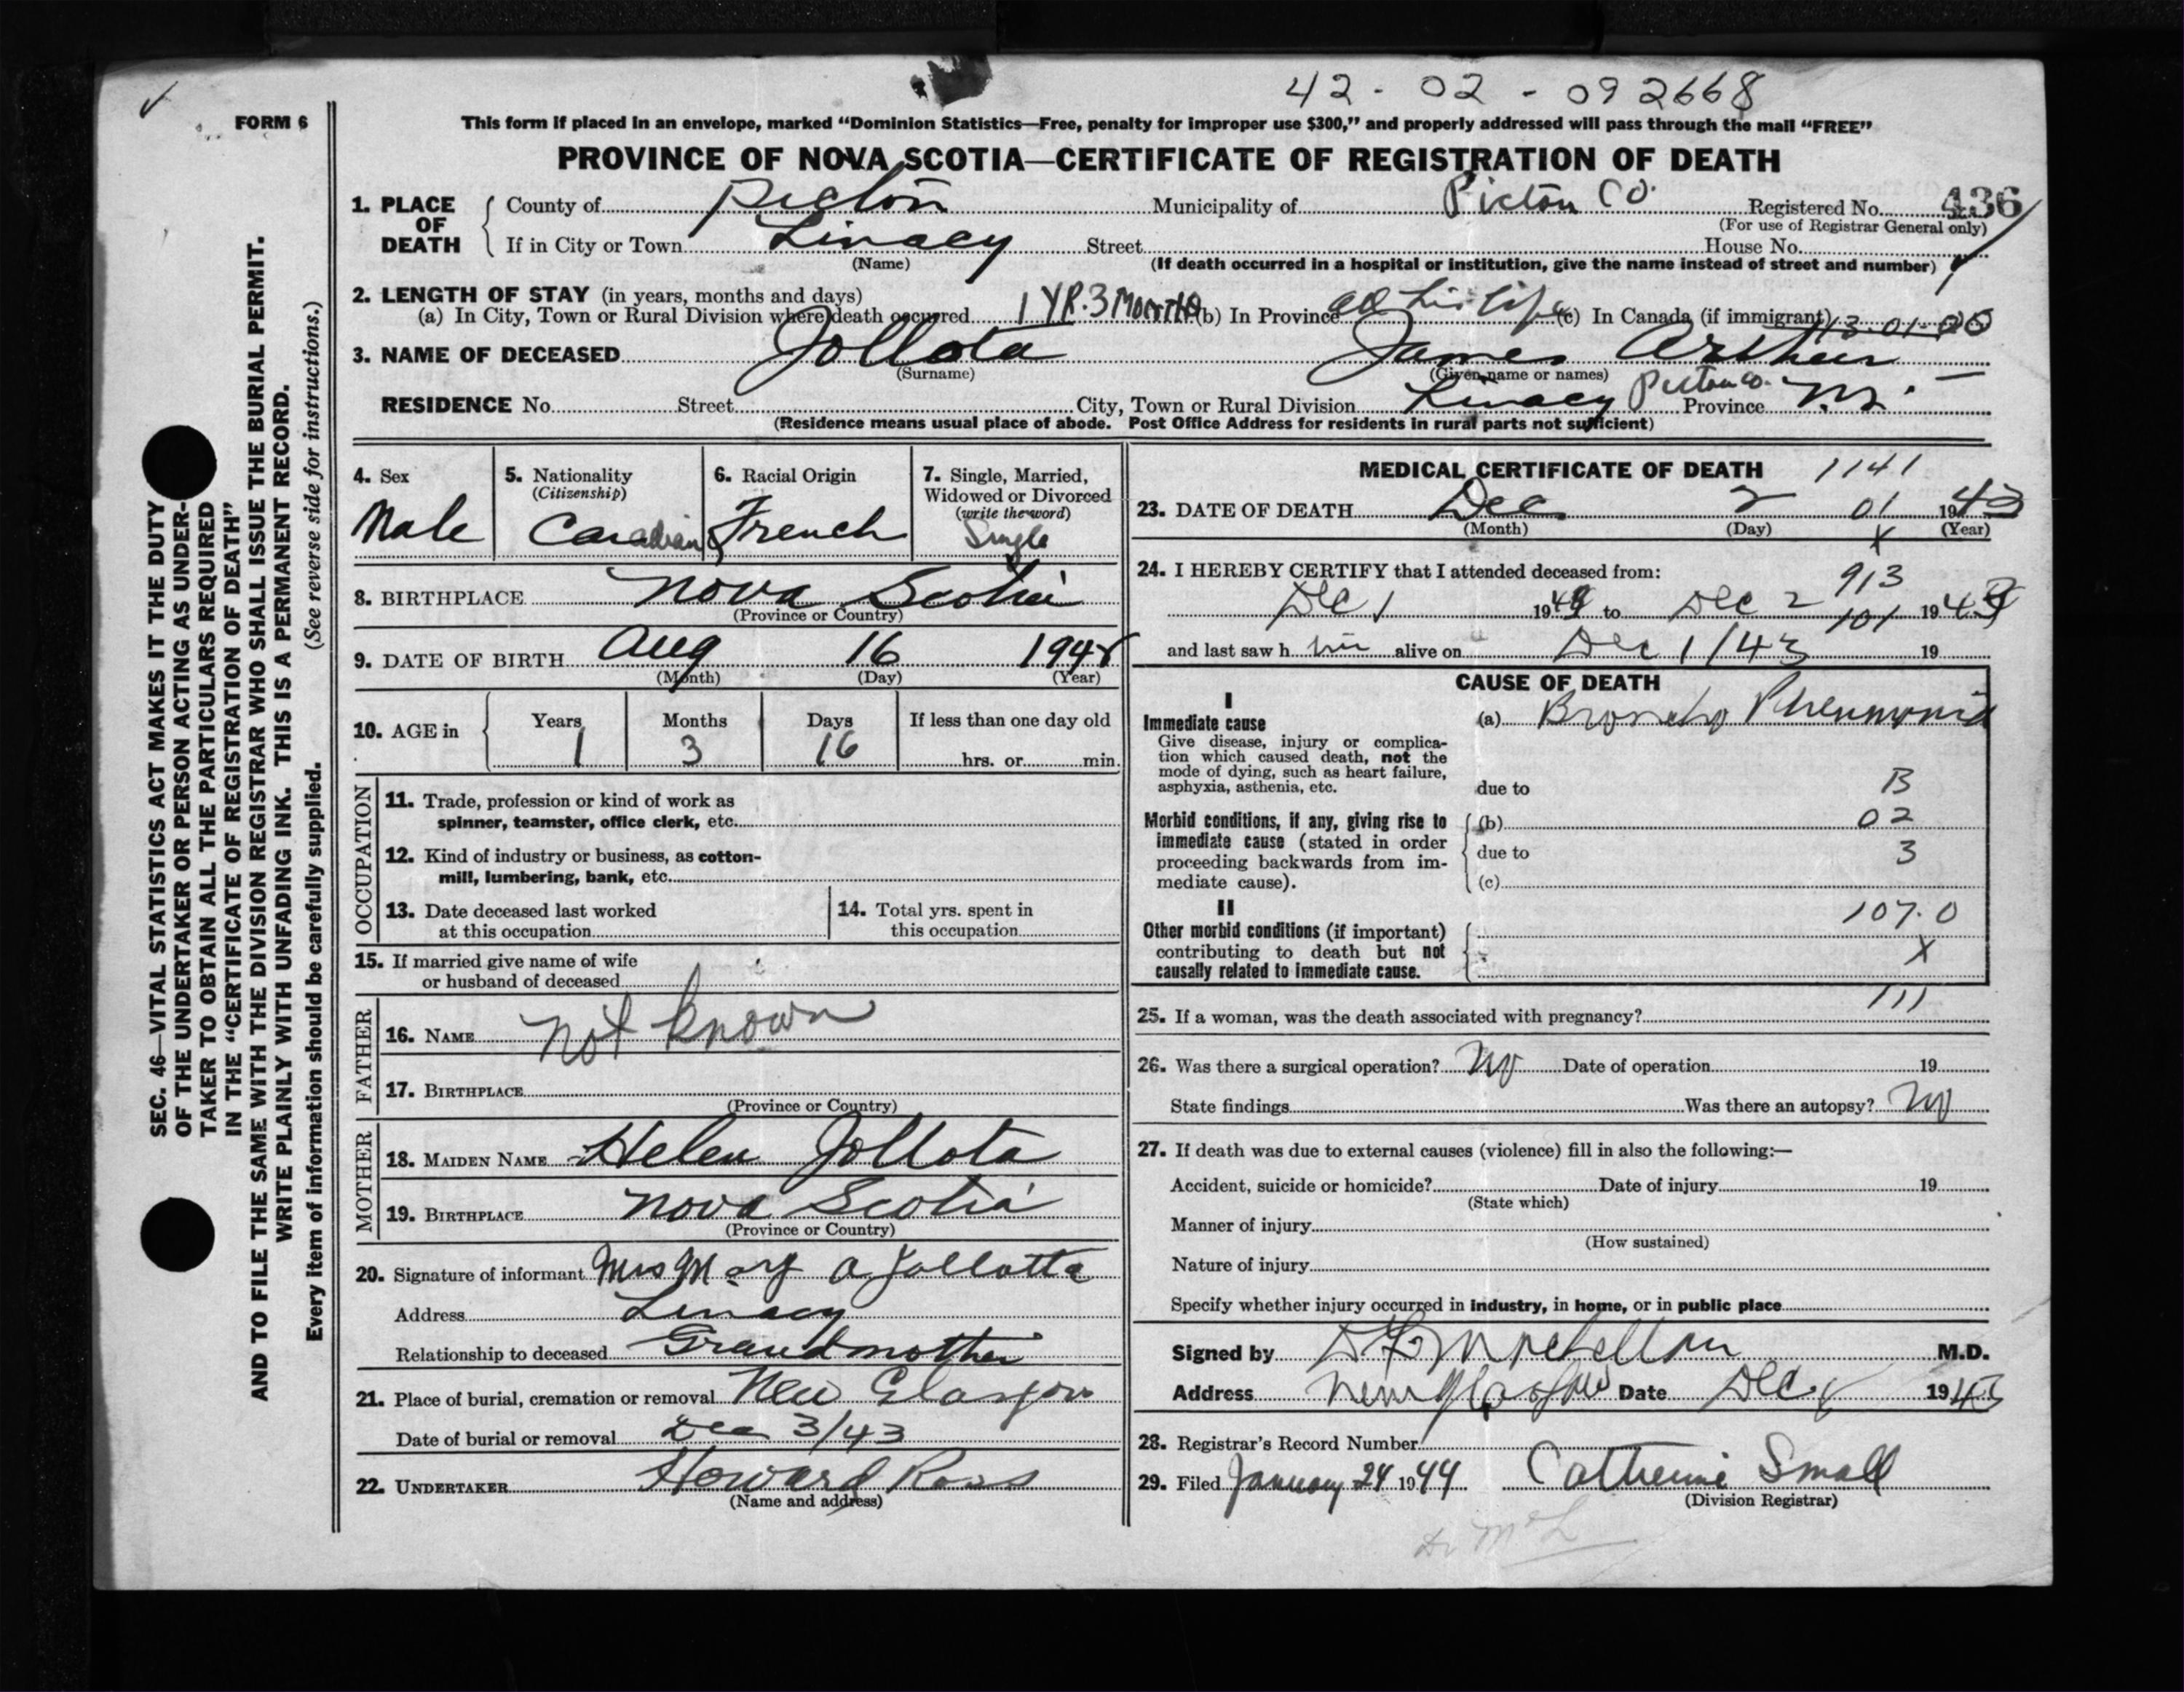 42 - 02 - 092668
FORM 6
This form if placed in an envelope, marked "Dominion Statistics—Free, penalty for improper use $300," and properly addressed will pass through the mail "FREE"
PROVINCE OF NOVA SCOTIA—CERTIFICATE OF REGISTRATION OF DEATH
1. PLACE OF DEATH
County of Pictou Municipality of Pictou Co. Registered No. 436
(For use of Registrar General only)
If in City or Town Linacy Street House No.
(Name) (If death occurred in a hospital or institution, give the name instead of street and number)
2. LENGTH OF STAY (in years, months and days)
(a) In City, Town or Rural Division where death occurred 1 YR. 3 Months (b) In Province all his life (c) In Canada (if immigrant)
3. NAME OF DECEASED Jollota James Arthur
(Surname) (Given name or names)
RESIDENCE No. Street City, Town or Rural Division Linacy Pictou Co. Province N.S.
(Residence means usual place of abode. Post Office Address for residents in rural parts not sufficient)
4. Sex
Male
5. Nationality
(Citizenship)
Canadian
6. Racial Origin
French
7. Single, Married,
Widowed or Divorced
(write the word)
Single
8. BIRTHPLACE Nova Scotia
(Province or Country)
9. DATE OF BIRTH Aug 16
(Month) (Day) (Year)
10. AGE in
Years Months Days If less than one day old
1 3 16 hrs. or min.
OCCUPATION
11. Trade, profession or kind of work as
spinner, teamster, office clerk, etc.
12. Kind of industry or business, as cotton-
mill, lumbering, bank, etc.
13. Date deceased last worked
at this occupation
14. Total yrs. spent in
this occupation
15. If married give name of wife
or husband of deceased
FATHER
16. NAME not known
17. BIRTHPLACE
(Province or Country)
MOTHER
18. MAIDEN NAME Helen Jollota
19. BIRTHPLACE Nova Scotia
(Province or Country)
20. Signature of informant Mrs Mary A Jollotta
Address Linacy
Relationship to deceased Grandmother
21. Place of burial, cremation or removal New Glasgow
Date of burial or removal Dec 3/43
22. UNDERTAKER Howard Ross
(Name and address)
MEDICAL CERTIFICATE OF DEATH 1141
23. DATE OF DEATH Dec 2 01 1943
(Month) (Day) X (Year)
24. I HEREBY CERTIFY that I attended deceased from:
913
Dec 1 19 to Dec 2 101 1943
and last saw h im alive on Dec 1/43 19
CAUSE OF DEATH
I
Immediate cause
Give disease, injury or complica-
tion which caused death, not the
mode of dying, such as heart failure,
asphyxia, asthenia, etc.
(a) Broncho Pneumonia
due to B
Morbid conditions, if any, giving rise to
immediate cause (stated in order
proceeding backwards from im-
mediate cause).
(b) 02
due to 3
(c)
II
Other morbid conditions (if important)
contributing to death but not
causally related to immediate cause.
107.0
X
111
25. If a woman, was the death associated with pregnancy?
26. Was there a surgical operation? No Date of operation 19
State findings Was there an autopsy? No
27. If death was due to external causes (violence) fill in also the following:—
Accident, suicide or homicide? Date of injury 19
(State which)
Manner of injury
(How sustained)
Nature of injury
Specify whether injury occurred in industry, in home, or in public place
Signed by M.D.
Address New Glasgow Date Dec. 1943
28. Registrar's Record Number
29. Filed January 24 1944 Catherine Small
(Division Registrar)
Dr McL
SEC. 46—VITAL STATISTICS ACT MAKES IT THE DUTY
OF THE UNDERTAKER OR PERSON ACTING AS UNDER-
TAKER TO OBTAIN ALL THE PARTICULARS REQUIRED
IN THE "CERTIFICATE OF REGISTRATION OF DEATH"
AND TO FILE THE SAME WITH THE DIVISION REGISTRAR WHO SHALL ISSUE THE BURIAL PERMIT.
WRITE PLAINLY WITH UNFADING INK. THIS IS A PERMANENT RECORD.
Every item of information should be carefully supplied. (See reverse side for instructions.)